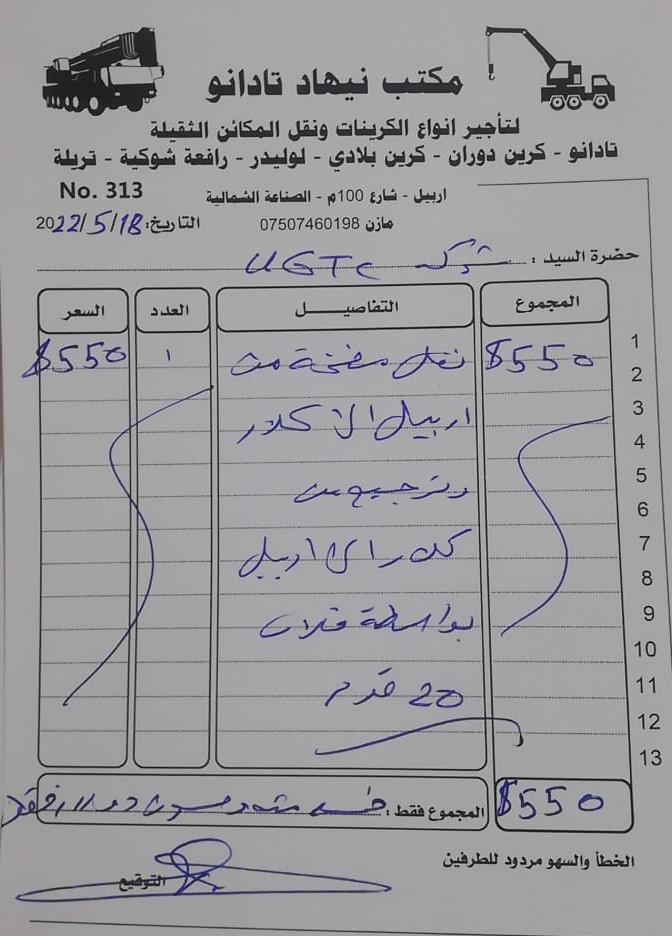 مكتب نيهاد تادانو
لتأجير انواع الكرينات ونقل المكائن الثقيلة
تادانو - كرين دوران - كرين بلادي - لوليدر - رافعة شوكية - تريلة
اربيل - شارع 100م - الصناعة الشمالية
No. 313
مازن 07507460198
التاريخ: 2022/5/18
حضرة السيد : شركة UGTc
المجموع التفاصيل العدد السعر
1
$550 نقل مضخة من ١ $550
2
3
اربيل الى كلار
4
5
وترجيع من
6
7
كلار الى اربيل
8
9
بواسطة فلات
10
11
20 قدم
12
13
$550 المجموع فقط : خمسمئة وخمسون دولار فقط
الخطأ والسهو مردود للطرفين
التوقيع